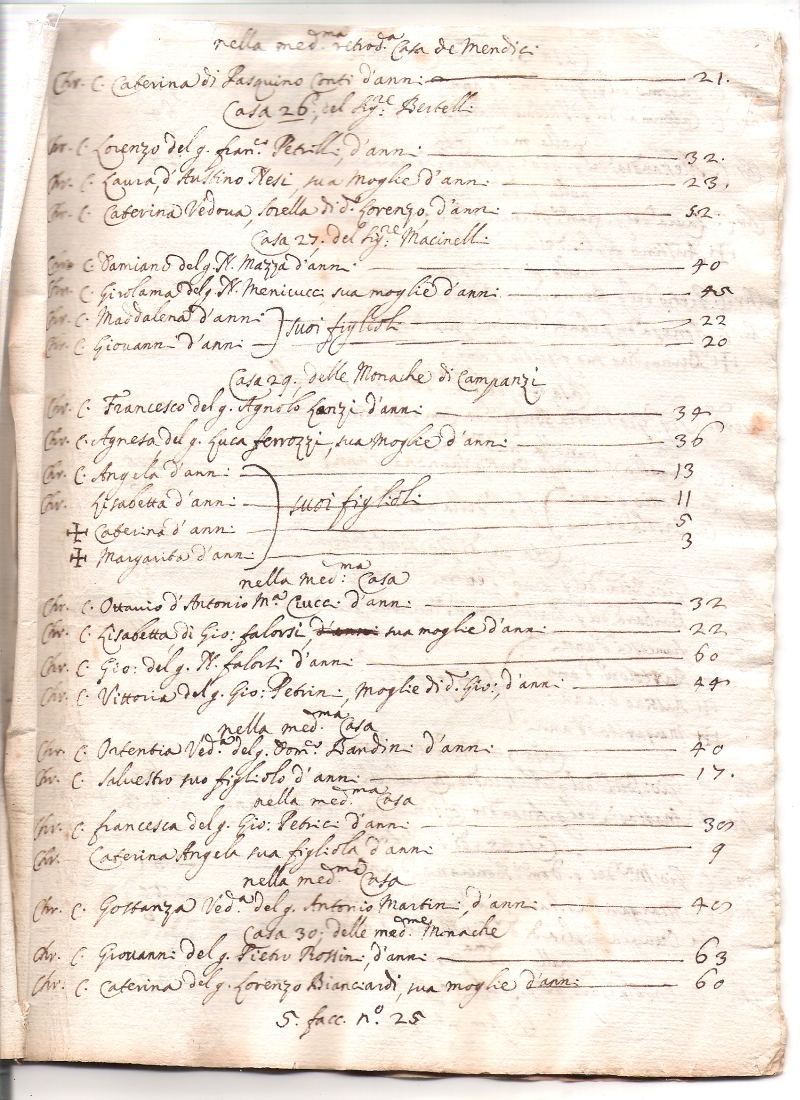 nella med:ma retrod:a Casa de Mendici
Chr. C. Caterina di Pasquino Conti d'anni 21.
Casa 26, del Sigre: Bertelli
Chr. C. Lorenzo del q. Franco: Petrilli, d'anni 32.
Chr. C. Laura, d'Austino Nesi, sua moglie d'anni 23.
Chr. C. Caterina Vedova, sorella di do: Lorenzo, d'anni 52.
Casa 27, del Sigre: Macinelli
Chr. C. Damiano del q. N. Mazza d'anni 40
Chr. C. Girolama del q. N. Menicucci sua moglie d'anni 45
Chr. C. Maddalena d'anni } suoi figlioli 22
Chr. C. Giovanni d'anni 20
Casa 29, delle Monache di Campanzi
Chr. C. Francesco del q. Agnolo Lanzi d'anni 34
Chr. C. Agnesa del q. Luca Ferrozzi, sua moglie d'anni 36
Chr. C. Angela d'anni 13
Chr. Lisabetta d'anni } suoi figlioli 11
✠ Caterina d'anni 5
✠ Margarita d'anni 3
nella med:ma Casa
Chr. C. Ottavio d'Antonio Ma: Ciucci d'anni 32
Chr. C. Lisabetta di Gio: Falorsi, d'anni sua moglie d'anni 22
Chr. C. Gio: del q. N. Falorsi d'anni 60
Chr. C. Vittoria del q. Gio: Petrini, moglie di do: Gio:, d'anni 44
nella med:ma Casa
Chr. C. Ortentia Ved:a del q. Domco: Bandini d'anni 40
Chr. C. Salvestro suo figliolo d'anni 17.
nella med:ma Casa
Chr. C. Francesca del q. Gio: Petrici d'anni 30
Chr. Caterina Angela sua figliola d'anni 9
nella med:ma Casa
Chr. C. Gostanza Ved:a del q. Antonio Martini, d'anni 40
Casa 30: delle med:me Monache
Chr. C. Giovanni del q. Pietro Rossini, d'anni 63
Chr. C. Caterina del q. Lorenzo Bianciardi, sua moglie d'anni 60
5. facc. no. 25